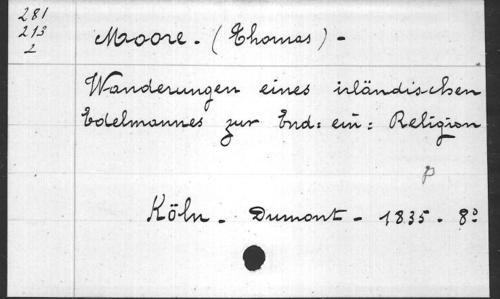 281
213
2
Moore. (Thomas) -
Wanderungen eines irländischen
Edelmannes zur End: ein: Religion
p
Köln. Dumont - 1835. 8°